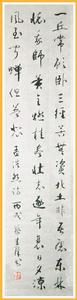 一丘常欲卧三径苦無資北土非吾願東林
懷我師黄金然桂盡壯志逐年衰日夕凉
風至聞蟬但益悲
孟浩然詩